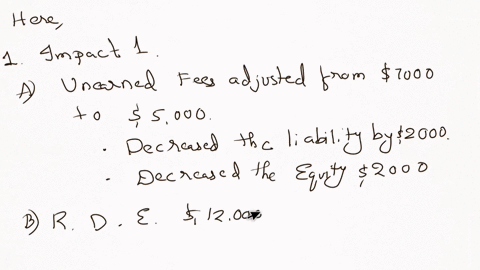 Here,
1. Impact 1.
A) Unearned Fees adjusted from $7000
to $5,000.
• Decreased the liability by $2000.
• Decreased the Equity $2000
B) R. D. E. $12.000